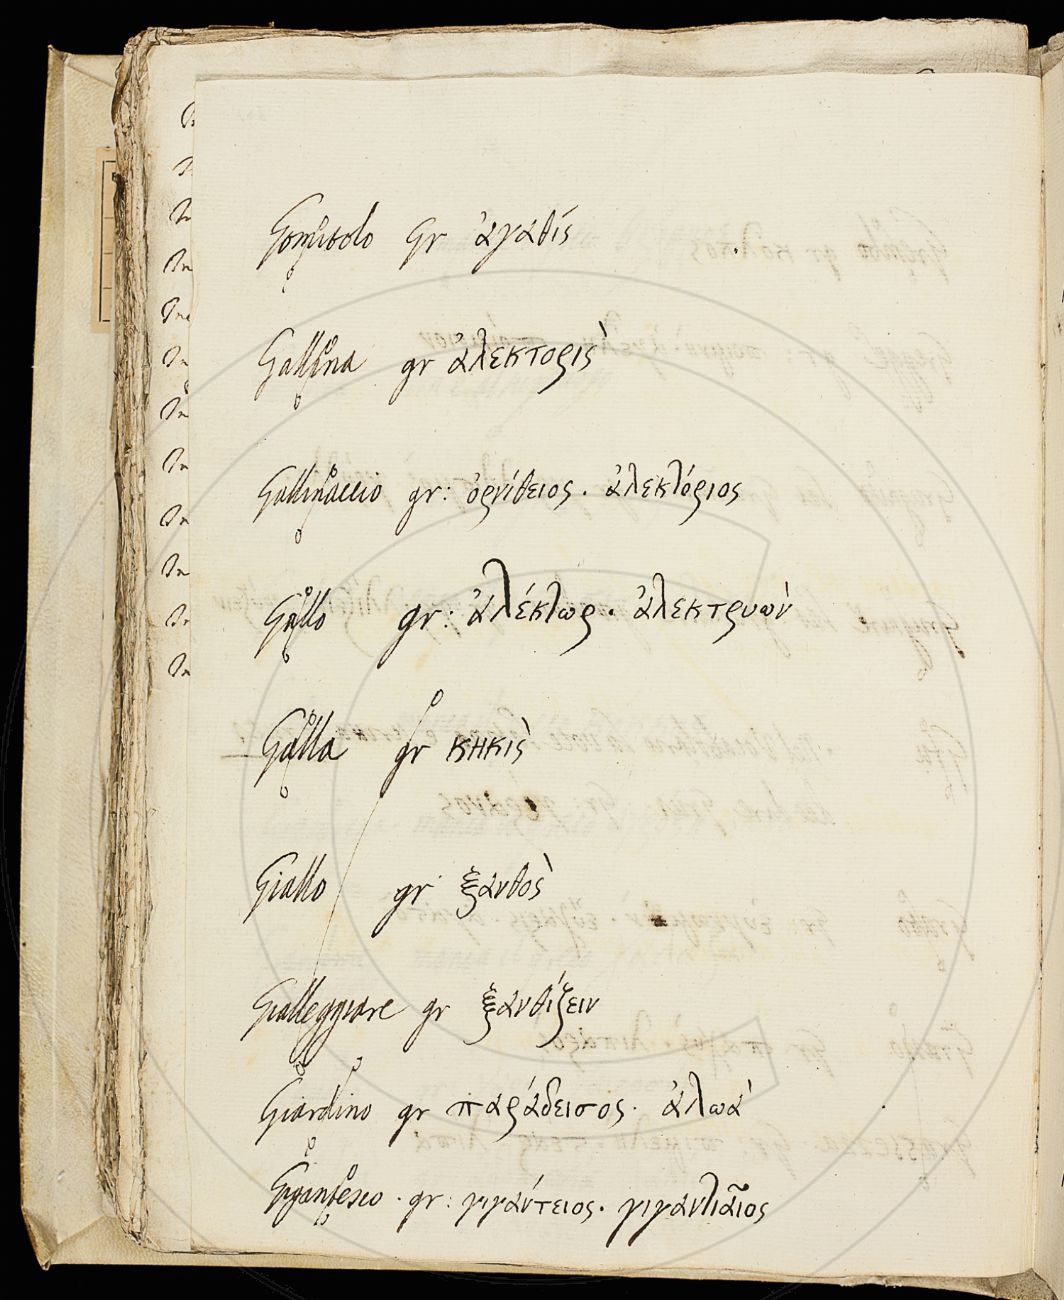 Gomitolo Gr ἀγαθίς
Gallina gr ἀλεκτορὶς
Gallinaccio gr: ὀρνίθειος. ἀλεκτόριος
Gallo gr: ἀλέκτωρ. ἀλεκτρυὼν
Galla gr κηκὶς
Giallo gr ξανθὸς
Gialleggiare gr ξανθίζειν
Giardino gr παράδεισος. ἀλωὰ
Gigantesco. gr: γιγάντειος. γιγαντιαῖος